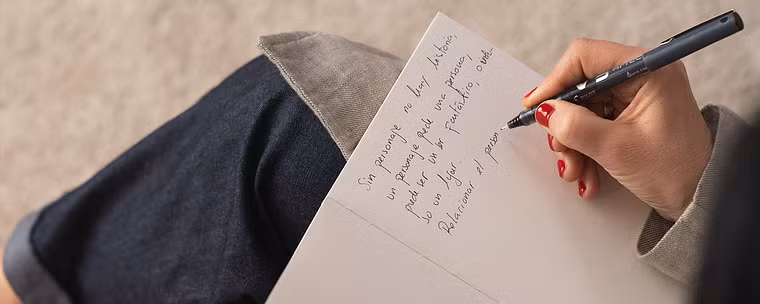 Sin personaje no hay historia,
un personaje puede una persona,
puede ser un ser fantástico, o inclu-
so un lugar.
Relacionar el person